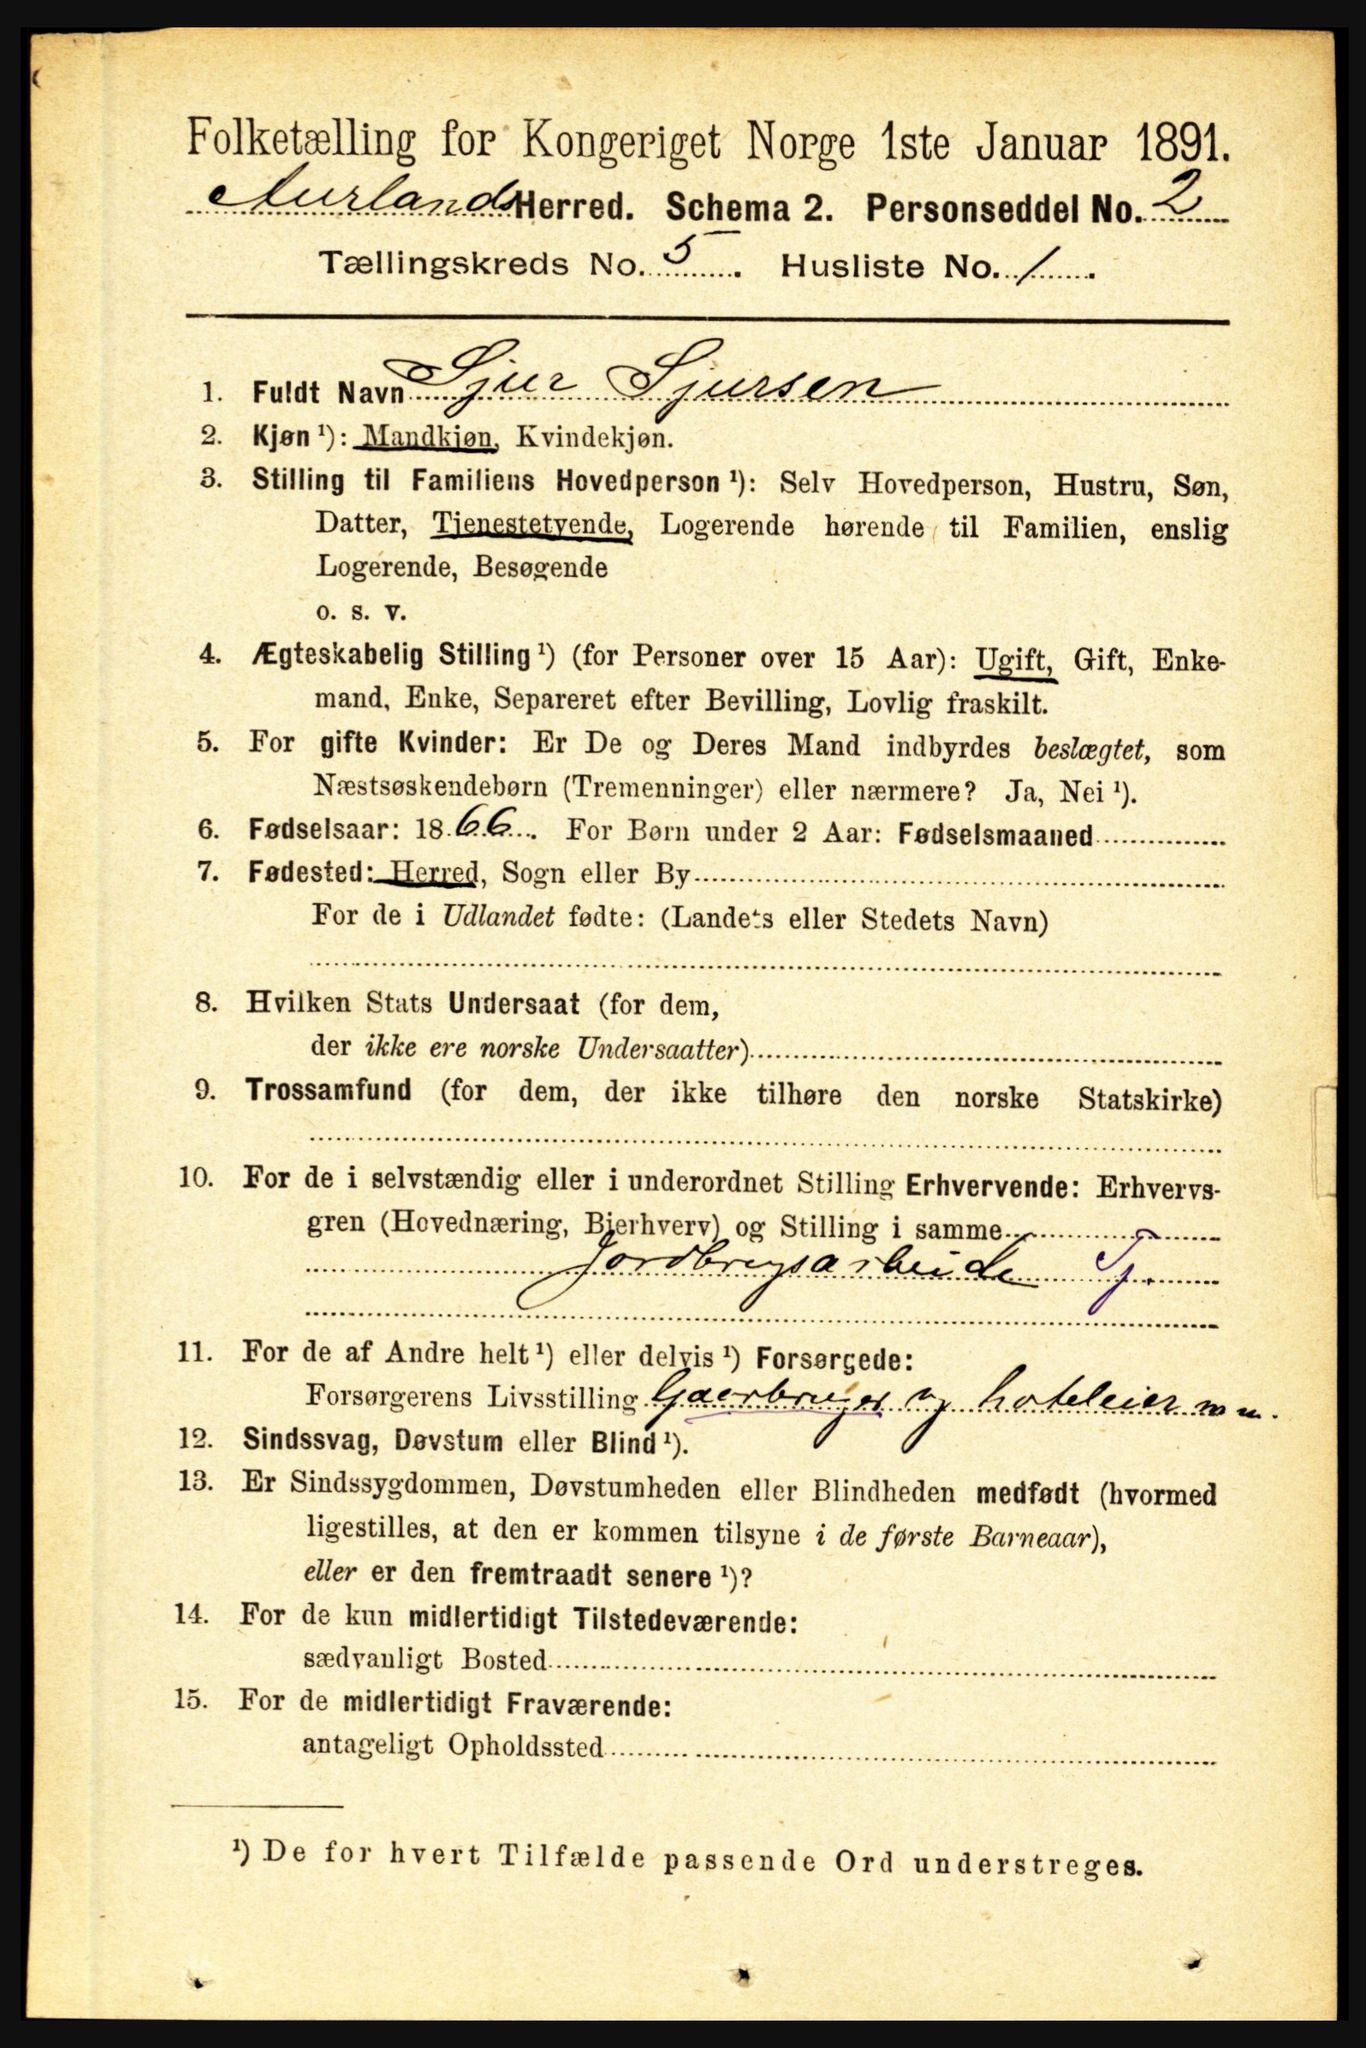 Folketælling for Kongeriget Norge 1ste Januar 1891.
Aurlands Herred. Schema 2. Personseddel No. 2
Tællingskreds No. 5. Husliste No. 1.
1. Fuldt Navn Sjur Sjursen
2. Kjøn ¹): Mandkjøn, Kvindekjøn.
3. Stilling til Familiens Hovedperson ¹): Selv Hovedperson, Hustru, Søn,
Datter, Tjenestetyende, Logerende hørende til Familien, enslig
Logerende, Besøgende
o. s. v.
4. Ægteskabelig Stilling ¹) (for Personer over 15 Aar): Ugift, Gift, Enke-
mand, Enke, Separeret efter Bevilling, Lovlig fraskilt.
5. For gifte Kvinder: Er De og Deres Mand indbyrdes beslægtet, som
Næstsøskendebørn (Tremenninger) eller nærmere? Ja, Nei ¹).
6. Fødselsaar: 1866. For Børn under 2 Aar: Fødselsmaaned
7. Fødested: Herred, Sogn eller By
For de i Udlandet fødte: (Landets eller Stedets Navn)
8. Hvilken Stats Undersaat (for dem,
der ikke ere norske Undersaatter)
9. Trossamfund (for dem, der ikke tilhøre den norske Statskirke)
10. For de i selvstændig eller i underordnet Stilling Erhvervende: Erhvervs-
gren (Hovednæring, Bierhverv) og Stilling i samme
Jordbrugsarbeide Tj.
11. For de af Andre helt ¹) eller delvis ¹) Forsørgede:
Forsørgerens Livsstilling Gaardbruger og hoteleier m m.
12. Sindssvag, Døvstum eller Blind ¹).
13. Er Sindssygdommen, Døvstumheden eller Blindheden medfødt (hvormed
ligestilles, at den er kommen tilsyne i de første Barneaar),
eller er den fremtraadt senere ¹)?
14. For de kun midlertidigt Tilstedeværende:
sædvanligt Bosted
15. For de midlertidigt Fraværende:
antageligt Opholdssted
¹) De for hvert Tilfælde passende Ord understreges.